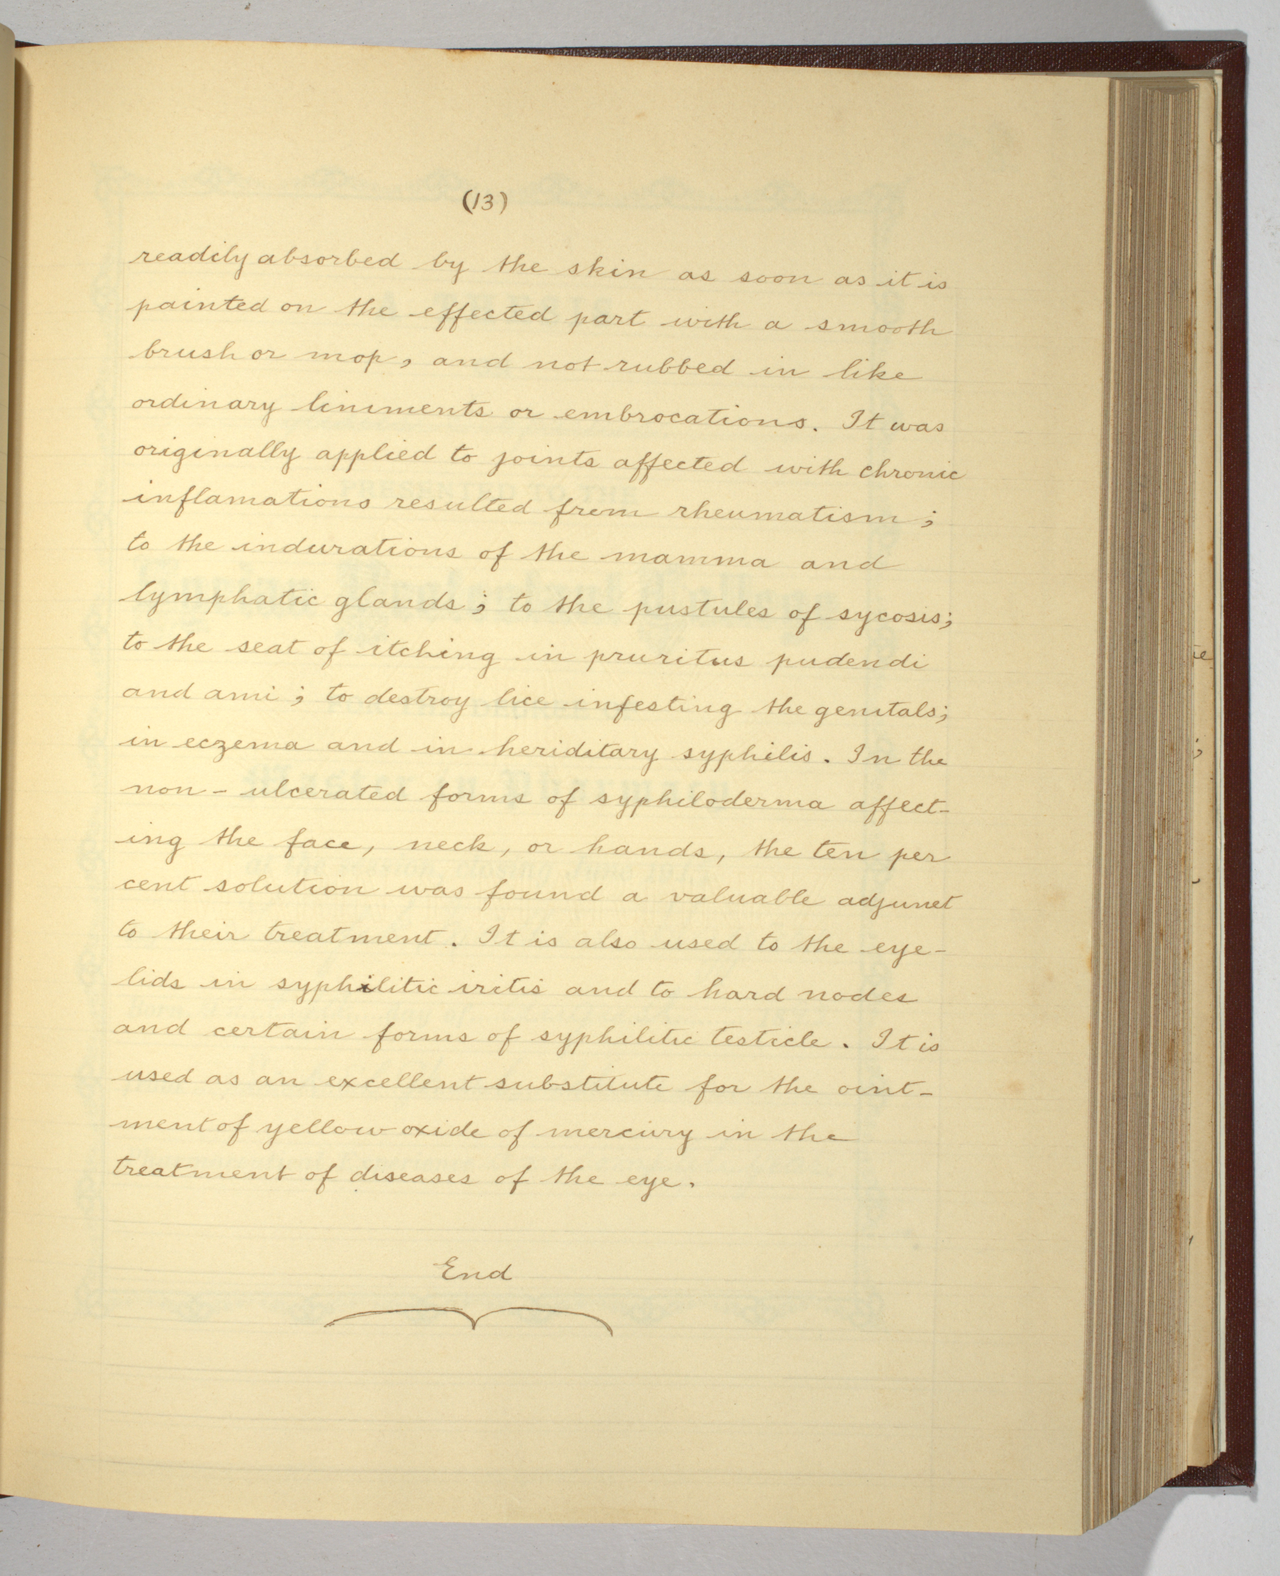 (13)
readily absorbed by the skin as soon as it is
painted on the effected part with a smooth
brush or mop, and not rubbed in like
ordinary liniments or embrocations. It was
originally applied to joints affected with chronic
inflamations resulted from rheumatism;
to the indurations of the mamma and
lymphatic glands; to the pustules of sycosis;
to the seat of itching in pruritus pudendi
and ami; to destroy lice infesting the genitals;
in eczema and in heriditary syphilis. In the
non-ulcerated forms of syphiloderma affect-
ing the face, neck, or hands, the ten per
cent solution was found a valuable adjunct
to their treatment. It is also used to the eye-
lids in syphilitic iritis and to hard nodes
and certain forms of syphilitic testicle. It is
used as an excellent substitute for the oint-
ment of yellow oxide of mercury in the
treatment of diseases of the eye.
End